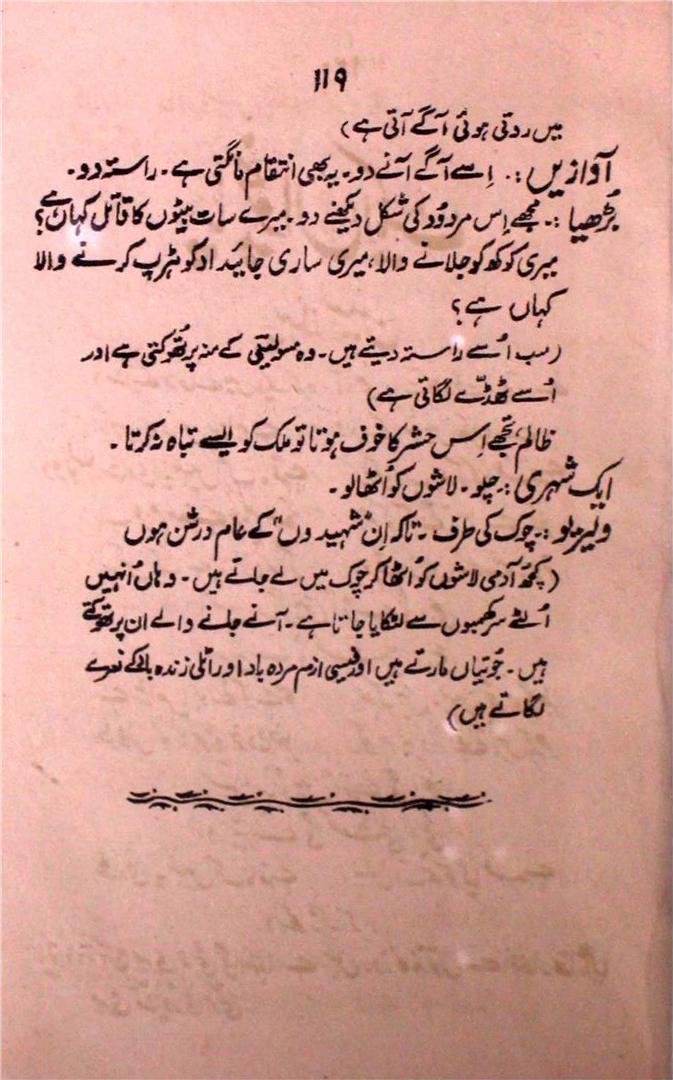 ۱۱۹
میں روتی ہوئی آگے آتی ہے)
آوازیں :. اِسے آگے آنے دو۔ یہ بھی انتقام مانگتی ہے۔ راستہ دو۔
بُڑھیا :۔ مجھے اِس مردُود کی شکل دیکھنے دو۔ میرے سات بیٹوں کا قاتل کہاں ہے؟
میری کوکھ کو جلانے والا، میری ساری جائیداد کو ہڑپ کرنے والا
کہاں ہے؟
(سب اُسے راستہ دیتے ہیں۔ وہ مسولینی کے منہ پر تُھوکتی ہے اور
اُسے ٹُھڈّے لگاتی ہے)
ظالم، تجھے اِس حشر کا خوف ہوتا تو ملک کو ایسے تباہ نہ کرتا۔
ایک شہری :۔ چلو۔ لاشوں کو اُٹھالو۔
ولیرملو :۔ چوک کی طرف۔ تاکہ اِن "شہیدوں" کے عام درشن ہوں
(کچھ آدمی لاشوں کو اُٹھا کر چوک میں لے جاتے ہیں۔ وہاں اُنہیں
اُلٹے سر کھمبوں سے لٹکایا جاتا ہے۔ آنے جانے والے ان پر تھوکتے
ہیں۔ جُوتیاں مارتے ہیں اور فیسی ازم مردہ باد اور اٹلی زندہ باد کے نعرے
لگاتے ہیں)